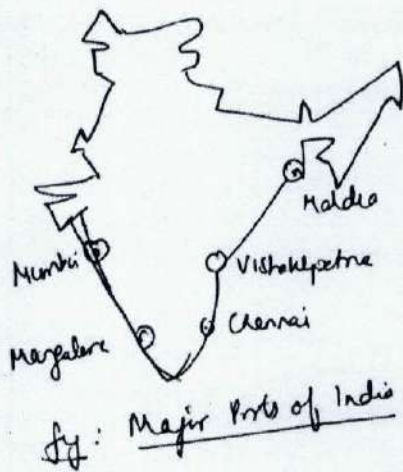 Haldia
Mumbai
Vishakhpatna
Chennai
Mangalore
fig: Major Ports of India